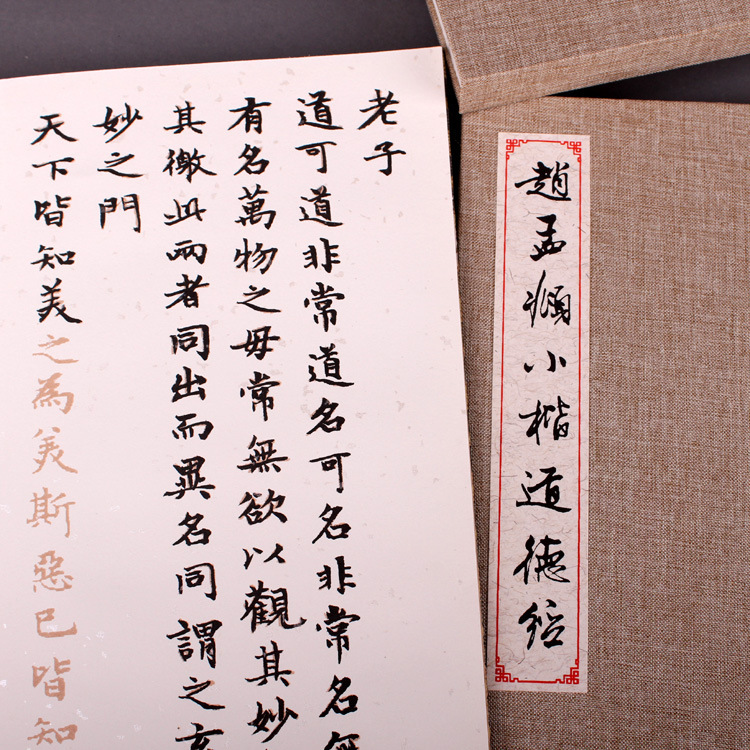 老子
道可道非常道名可名非常名無
有名萬物之母常無欲以觀其妙
其徼此兩者同出而異名同謂之玄
妙之門
天下皆知美之為美斯惡已皆知
趙孟頫小楷道德經